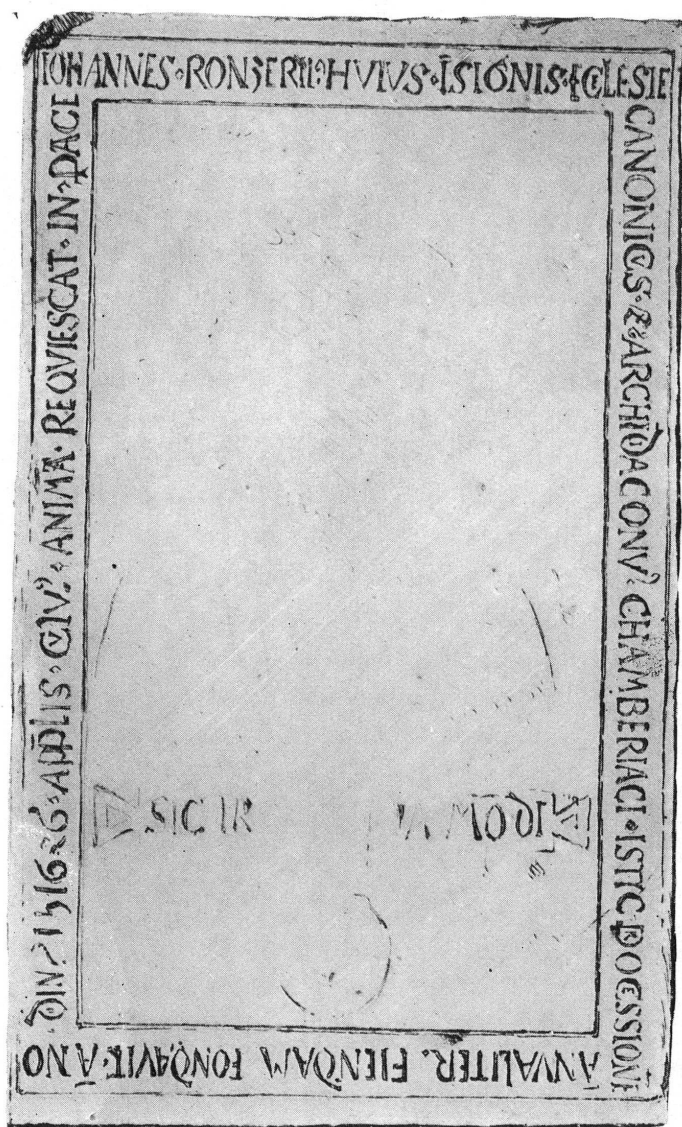 IOHANNES · RONZERII · HVIVS · ĪSIGNIS · ECCLESIE
CANONICVS · ET · ARCHIDIACONVS · CHAMBERIACI · ISTIC · PROCESSIONĒ
ĀNVALITER · FIENDAM FONDAVIT · ĀNO
DNI · 1516 · 26 · APPLIS · CVIVS · ANIMA · REQVIESCAT · IN · PACE
SIC IR